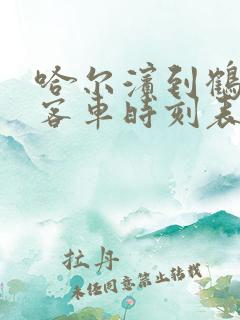 哈尔滨到鹤
客车时刻表
拉丹
未经同意禁止转载